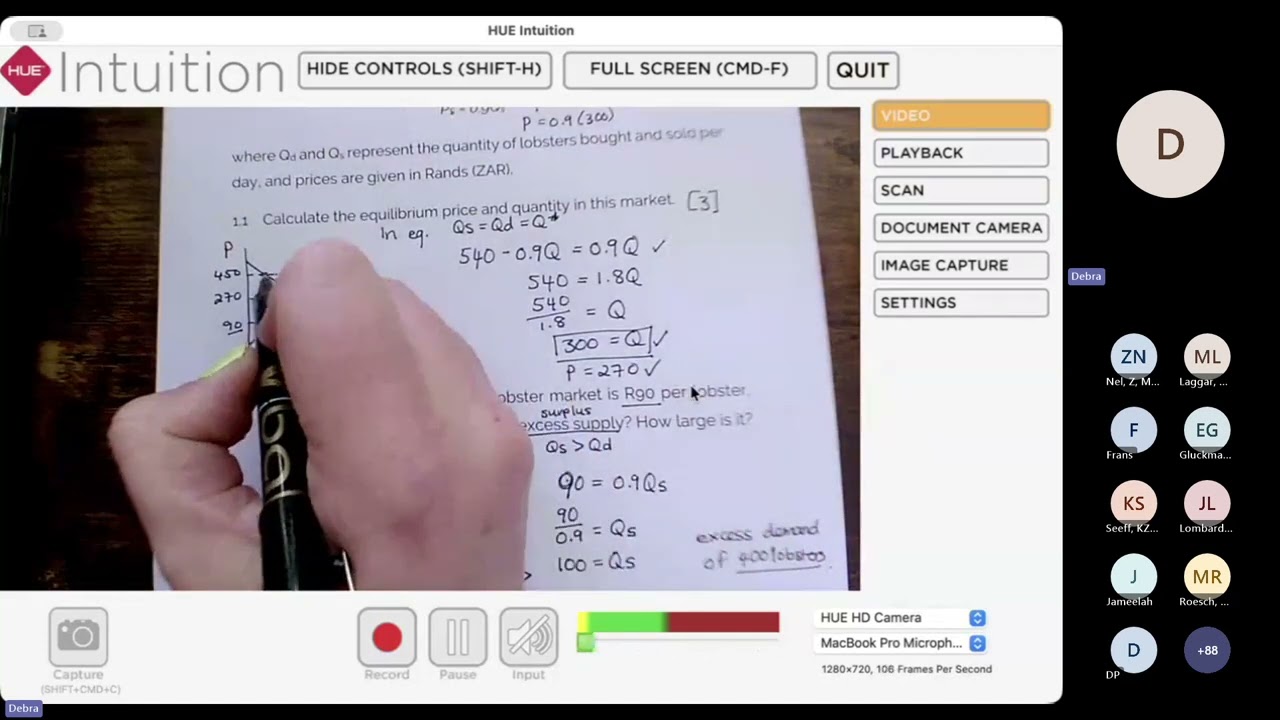 HUE Intuition
HUE Intuition
HIDE CONTROLS (SHIFT-H)
FULL SCREEN (CMD-F)
QUIT
VIDEO
PLAYBACK
SCAN
DOCUMENT CAMERA
IMAGE CAPTURE
SETTINGS
P = 0.9 (300)
where Qd and Qs represent the quantity of lobsters bought and sold per
day, and prices are given in Rands (ZAR).
1.1 Calculate the equilibrium price and quantity in this market. [3]
In eq. Qs = Qd = Q*
P
450
270
90
540 - 0.9Q = 0.9Q ✓
540 = 1.8Q
540
1.8 = Q
300 = Q ✓
P = 270 ✓
lobster market is R90 per lobster.
surplus
excess supply? How large is it?
Qs > Qd
90 = 0.9Qs
90
0.9 = Qs
100 = Qs
excess demand
of 400 lobsters.
>
Capture
(SHIFT+CMD+C)
Record
Pause
Input
HUE HD Camera
MacBook Pro Microph...
1280×720, 106 Frames Per Second
Debra
D
Debra
ZN
Nel, Z, M...
ML
Laggar, ...
F
Frans
EG
Gluckma...
KS
Seeff, KZ...
JL
Lombard...
J
Jameelah
MR
Roesch, ...
D
DP
+88